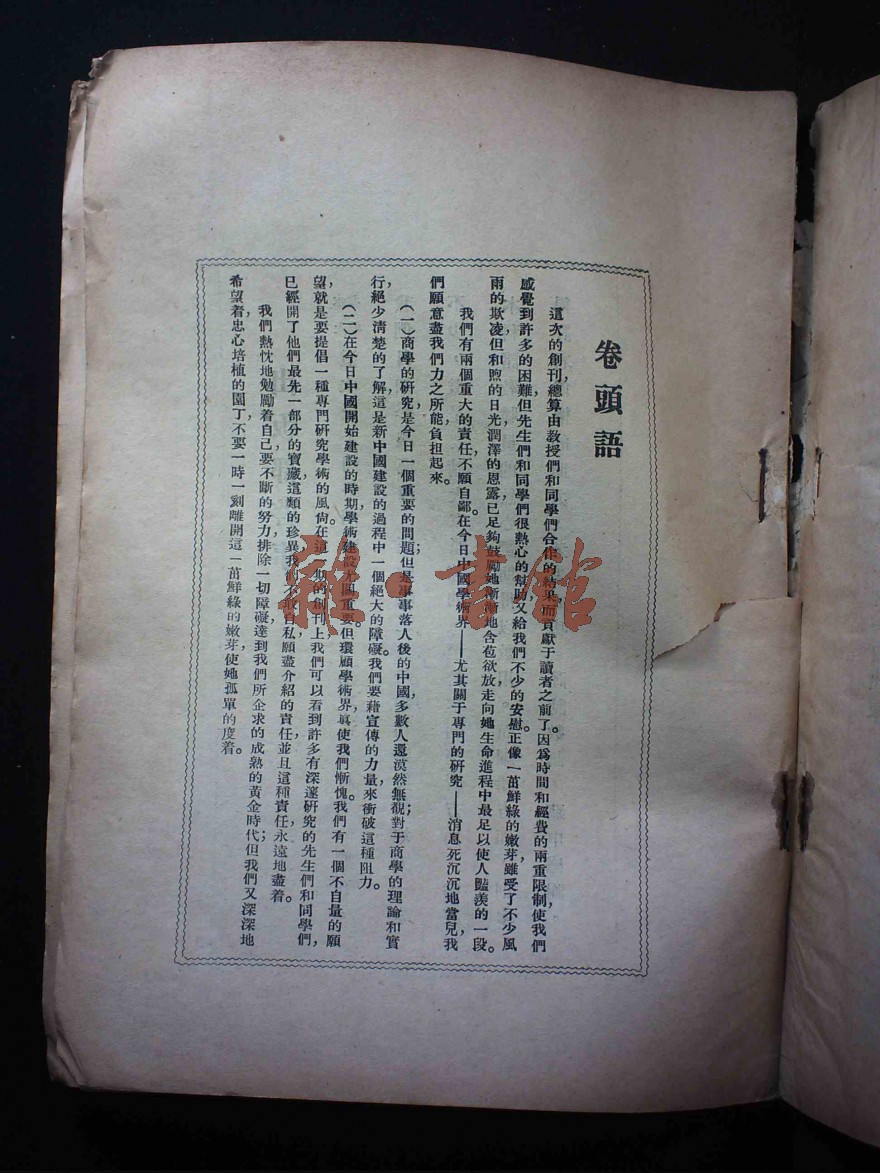 卷頭語
這次的創刊，總算由教授們和同學們合作的結果而貢獻于讀者之前了。因爲時間和經費的兩重限制，使我們
感覺到許多的困難，但先生們和同學們很熱心的幫助，又給我們不少的安慰。正像一苗鮮綠的嫩芽，雖受了不少風
雨的欺凌，但和煦的日光，潤澤的恩露，已足夠鼓勵她漸漸地含苞欲放，走向她生命進程中最足以使人豔羨的一段。
我們有兩個重大的責任，不願自鄙。在今日中國學術界——尤其關于專門的研究——消息死沉沉地當兒，我
們願意盡我們力之所能，負担起來。
（一）商學的研究，是今日一個重要的問題；但是事事落人後的中國，多數人還漠然無覩；對于商學的理論和實
行，絕少清楚的了解，這是新中國建設的過程中一個絕大的障礙。我們要藉宣傳的力量，來衝破這種阻力。
（二）在今日中國開始建設的時期，學術建設尤關重要。但環顧學術界，眞使我們慚愧。我們有一個不自量的願
望，就是要提倡一種專門研究學術的風尙。在這一期的創刊上，我們可以看到許多有深邃研究的先生們和同學們，
已經開了他們最先一部分的寶藏，這類的珍異，我們不敢自私，願盡介紹的責任，並且這種責任永遠地盡着。
我們熱忱地勉勵着自己，要不斷的努力，排除一切障礙，達到我們所企求的成熟的黃金時代；但我們又深深地
希望着，忠心培植的園丁，不要一時一刻離開這一苗鮮綠的嫩芽，使她孤單的度着。
雅·書館